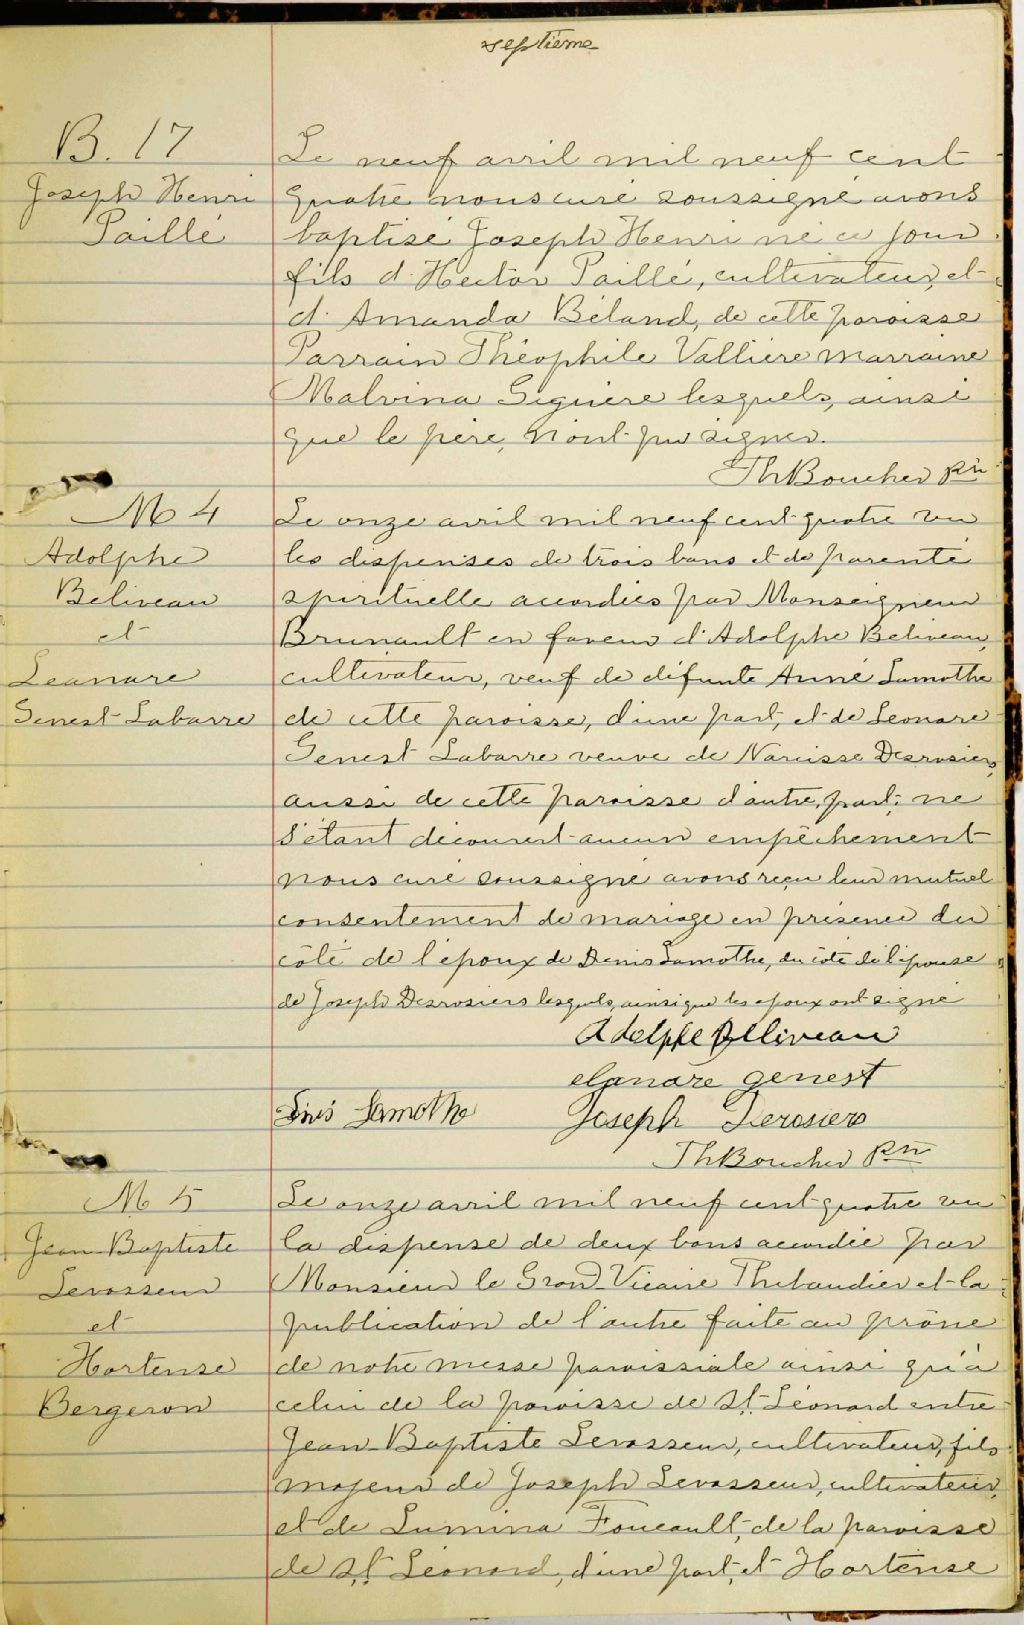 septième
B. 17
Joseph Henri
Paillé
Le neuf avril mil neuf cent
quatre nous curé soussigné avons
baptisé Joseph Henri né ce jour
fils d'Hector Paillé, cultivateur, et
d'Amanda Béland, de cette paroisse
Parrain Théophile Vallière marraine
Malvina Giguère lesquels, ainsi
que le père, n'ont pu signer.
Th Boucher Ptre
M 4
Adolphe
Beliveau
et
Leanare
Genest Labarre
Le onze avril mil neuf cent quatre vu
les dispenses de trois bans et de parenté
spirituelle accordées par Monseigneur
Brunault en faveur d'Adolphe Beliveau,
cultivateur, veuf de défunte Anné Lamothe
de cette paroisse, d'une part, et de Leonare
Genest Labarre veuve de Narcisse Desrosiers,
aussi de cette paroisse d'autre part; ne
s'étant découvert aucun empêchement
nous curé soussigné avons reçu leur mutuel
consentement de mariage en présence du
côté de l'époux de Denis Lamothe, du côté de l'épouse
de Joseph Desrosiers lesquels, ainsi que les époux ont signé
Adolphe Belliveau
elanare genest
Lamothe Joseph Derosiers
Th Boucher Ptre
M 5
Jean-Baptiste
Levasseur
et
Hortense
Bergeron
Le onze avril mil neuf cent quatre vu
la dispense de deux bans accordée par
Monsieur le Grand-Vicaire Thibaudier et la
publication de l'autre faite au prône
de notre messe paroissiale ainsi qu'à
celui de la paroisse de St-Léonard entre
Jean-Baptiste Levasseur, cultivateur, fils
majeur de Joseph Levasseur, cultivateur,
et de Lumina Foucault, de la paroisse
de St Léonard, d'une part, et Hortense